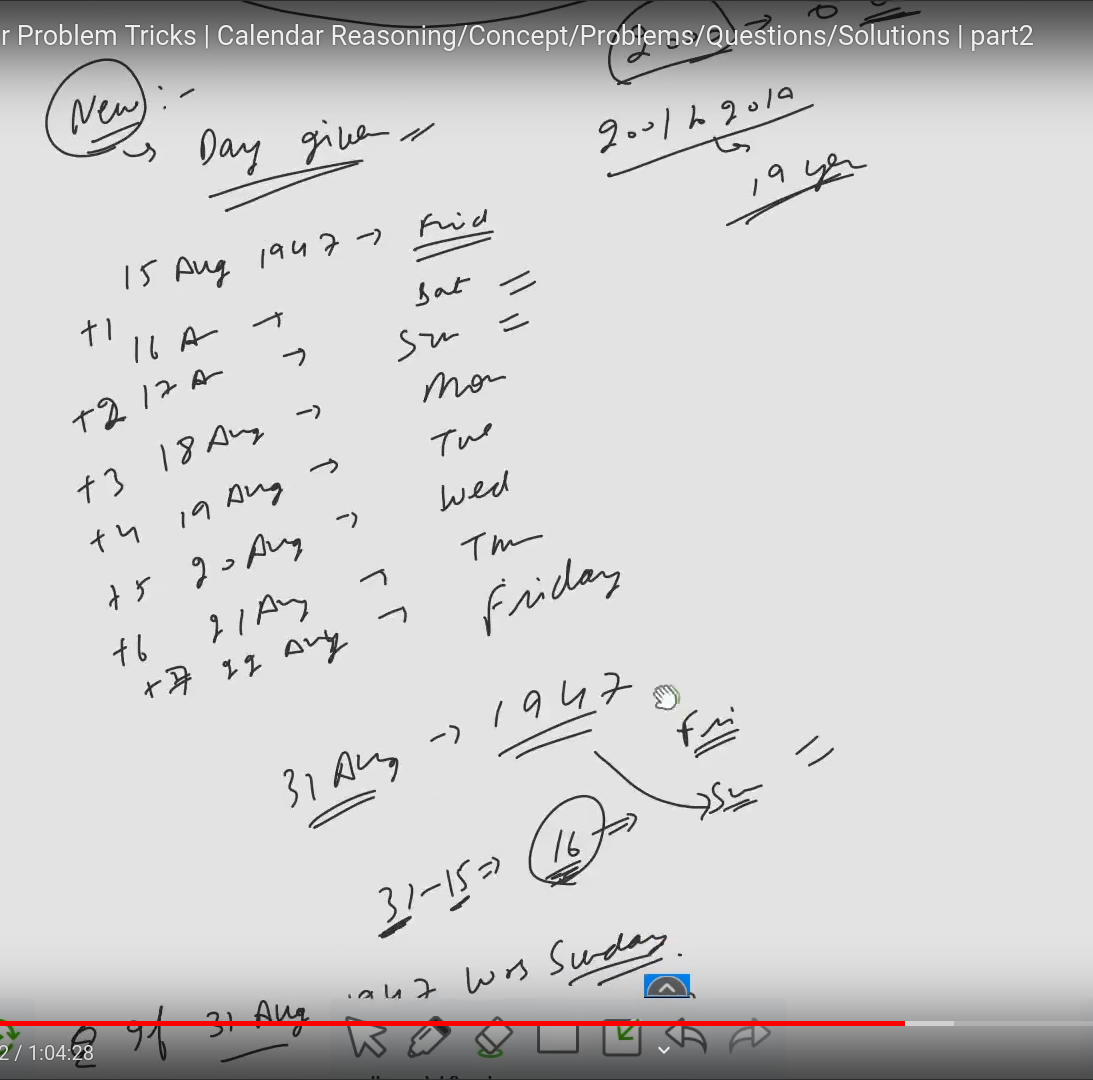 r Problem Tricks | Calendar Reasoning/Concept/Problems/Questions/Solutions | part2
New :-
→ Day given =
2001 to 2019
19 year
15 Aug 1947 → Frid
+1 16 A → Sat =
+2 17 A → Sun =
+3 18 Aug → Mon
+4 19 Aug → Tue
+5 20 Aug → Wed
+6 21 Aug → Thu
+7 22 Aug → Friday
31 Aug → 1947 Fri
→ Sun =
31-15 ⇒ 16 ⇒
Q if 31 Aug 1947 was Sunday.
2 / 1:04:28